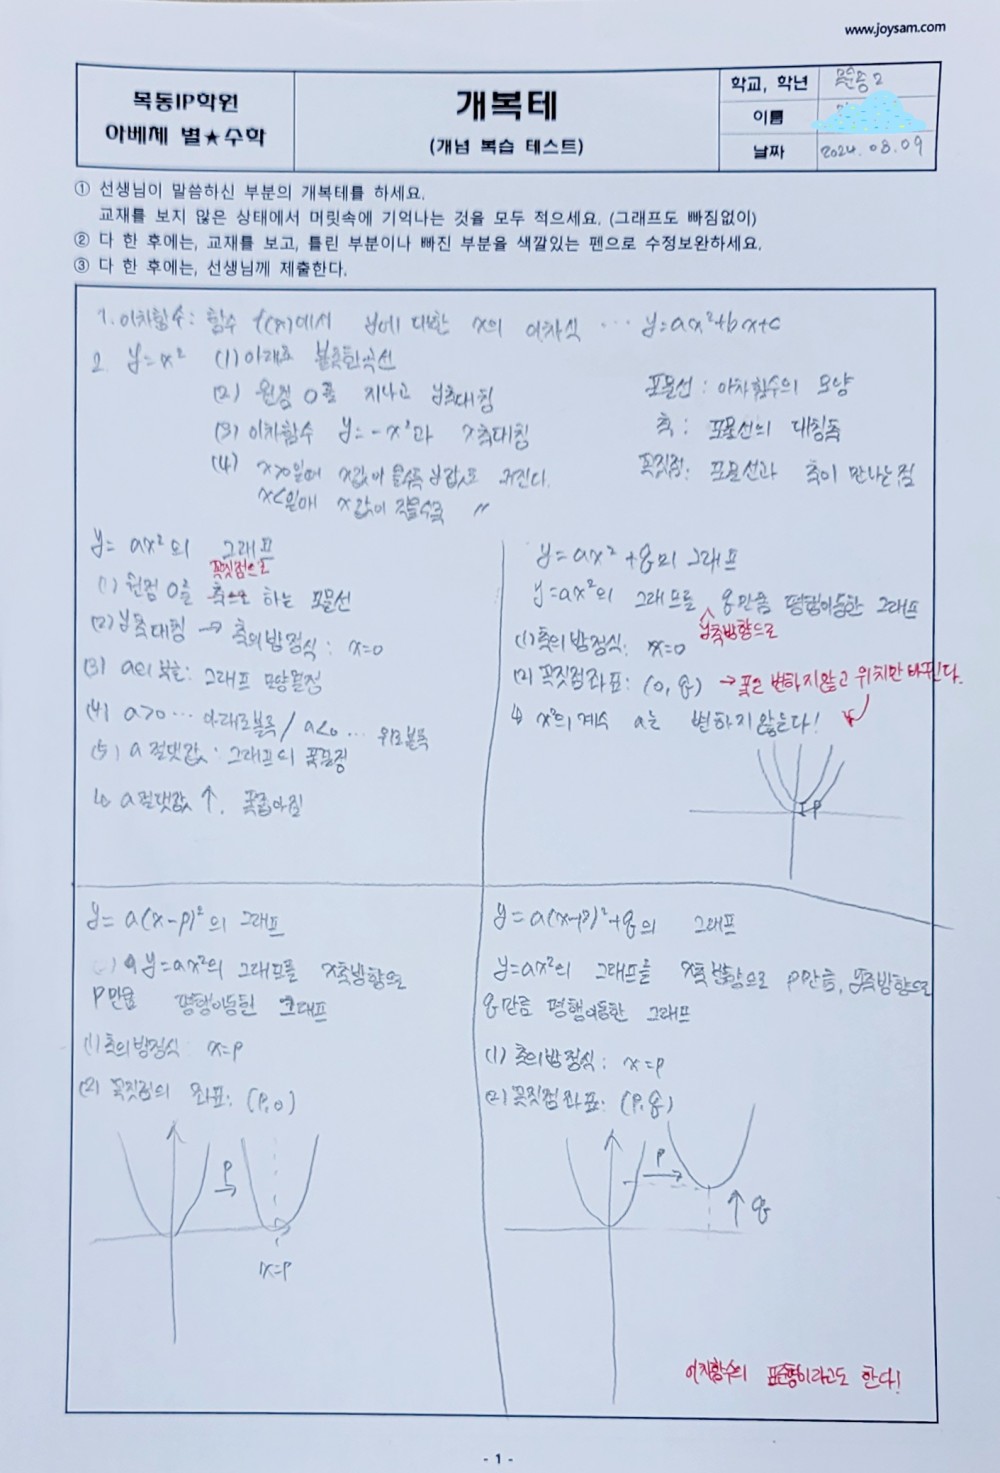 www.joysam.com
목동IP학원
아베체 별★수학
개복테
(개념 복습 테스트)
학교, 학년
중2
이름
날짜 2024.08.09
① 선생님이 말씀하신 부분의 개복테를 하세요.
교재를 보지 않은 상태에서 머릿속에 기억나는 것을 모두 적으세요. (그래프도 빠짐없이)
② 다 한 후에는, 교재를 보고, 틀린 부분이나 빠진 부분을 색깔있는 펜으로 수정보완하세요.
③ 다 한 후에는, 선생님께 제출한다.
1. 이차함수: 함수 f(x)에서 y에 대한 x의 이차식 … y=ax²+bx+c
2. y=x² (1) 아래로 볼록한곡선
(2) 원점 O를 지나고 y축대칭
(3) 이차함수 y=-x²과 x축대칭
(4) x>0일때 x값이 클수록 y값도 커진다.
x<0일때 x값이 작을수록 〃
포물선 : 이차함수의 모양
축 : 포물선의 대칭축
꼭짓점: 포물선과 축이 만나는 점
y=ax²의 그래프
꼭짓점으로
(1) 원점 O를 축으로 하는 포물선
(2) y축대칭 → 축의방정식 : x=0
(3) a의 부호: 그래프 모양결정
(4) a>0 … 아래로볼록 / a<0 … 위로볼록
(5) a 절댓값 : 그래프의 폭결정
↳ a절댓값 ↑, 폭좁아짐
y=ax²+q의 그래프
y=ax²의 그래프를 q만큼 평행이동한 그래프
y축방향으로
(1) 축의방정식: x=0
(2) 꼭짓점좌표: (0, q) → 폭은 변하지않고 위치만 바뀐다.
↳ x²의 계수 a는 변하지않는다!
q
y=a(x-p)²의 그래프
y=ax²의 그래프를 x축방향으로
p만큼 평행이동된 그래프
(1) 축의방정식 x=p
(2) 꼭짓점의 좌표: (p,0)
p
x=p
y=a(x-p)²+q의 그래프
y=ax²의 그래프를 x축방향으로 p만큼, y축방향으로
q만큼 평행이동한 그래프
(1) 축의방정식 : x=p
(2) 꼭짓점좌표: (p,q)
p
q
이차함수의 표준형이라고도 한다!
- 1 -